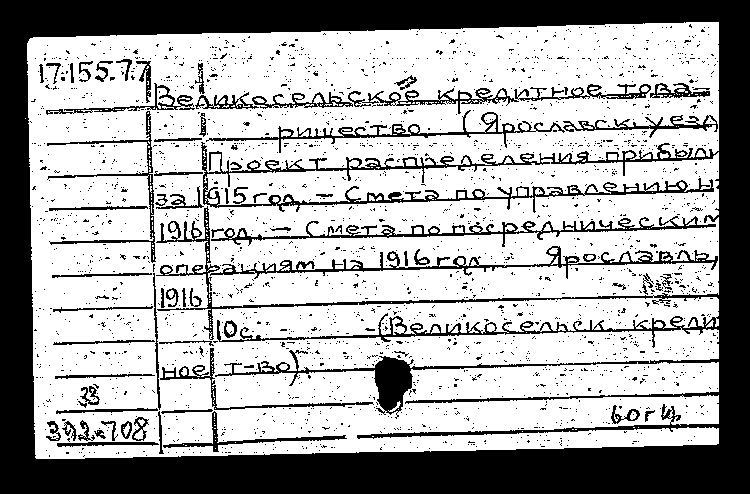 17.155.77
Великосельское кредитное това-
рищество. (Ярославск. уезд
Проект распределения прибыли
за 1915 год. – Смета по управлению н
1916 год. – Смета по посредническим
операциям на 1916 год. Ярославль,
1916
10с. -(Великосельск. креди
ное т-во).
33
392-708